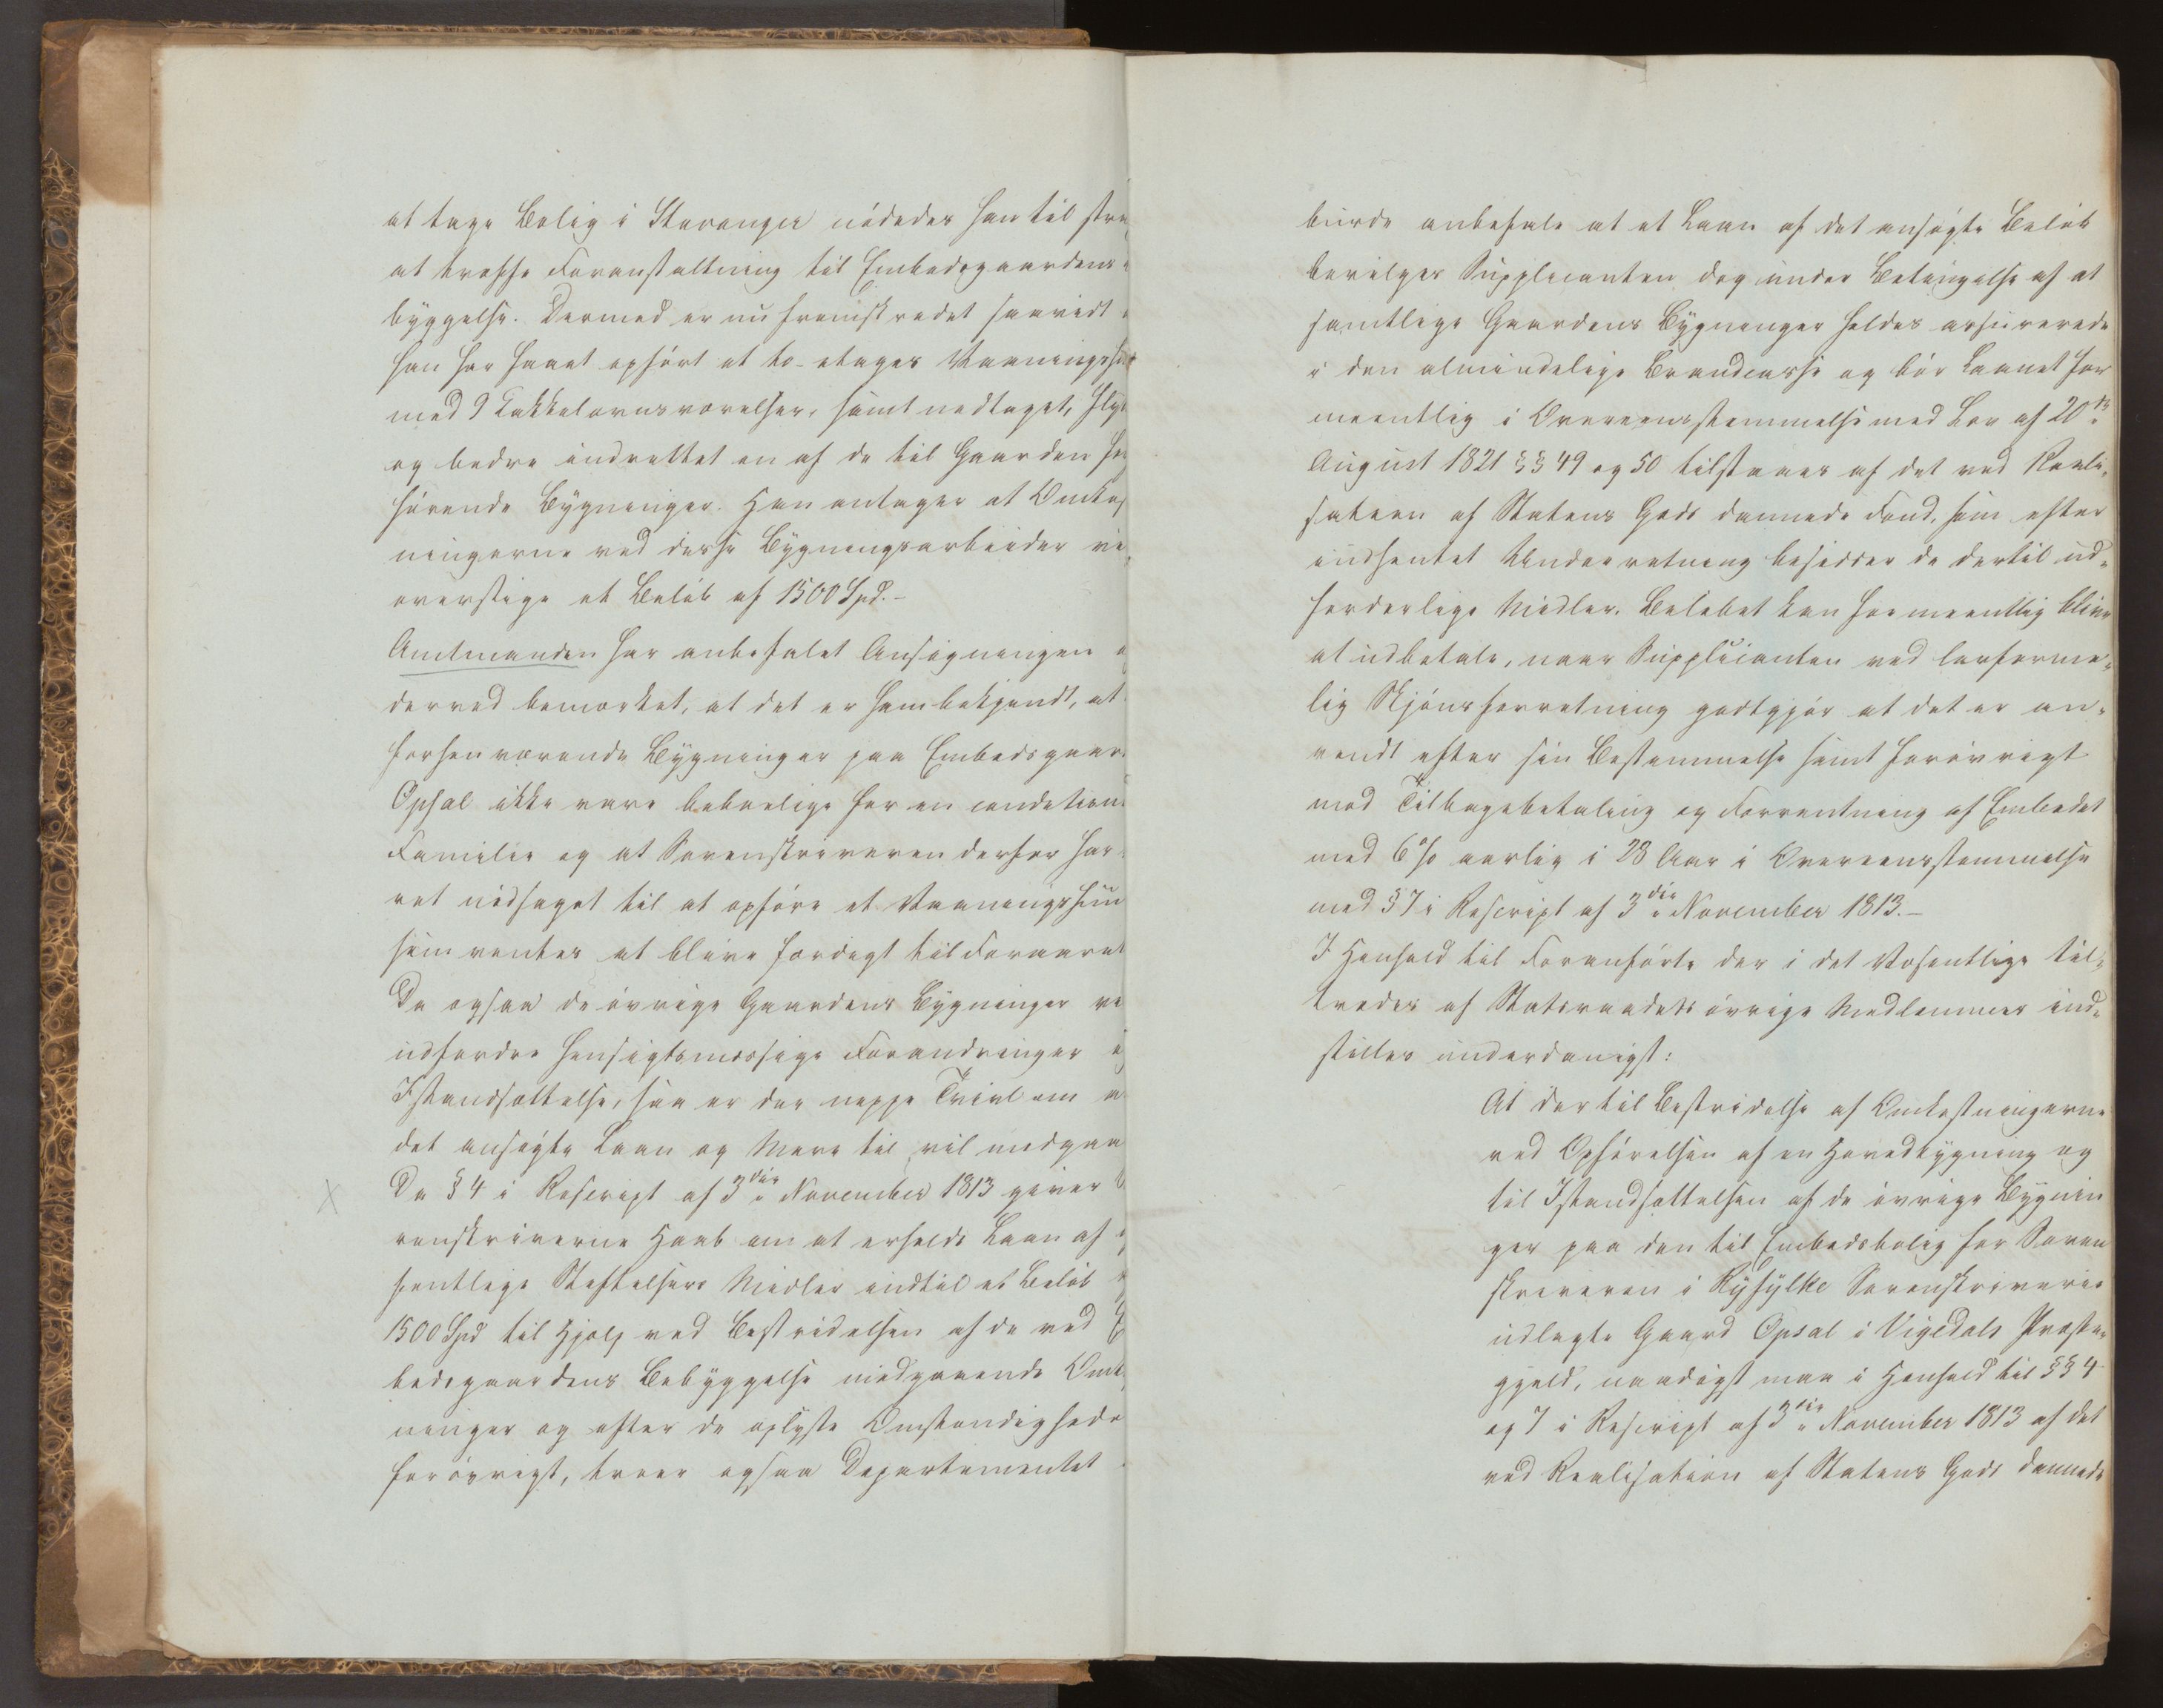 at tage Bolig i Stavanger nödedes han til stra
at træffe Foranstaltning til Embedsgaardens
byggelse. Dermed er nu fremskredet saavidt
han har faaet opfört et to-etages Vaaningshu
med 9 Kakkelovnsværelser, samt nedtaget, flyt
og bedre indrettet en af de til Gaarden he
hörende Bygninger. Han antager at Omkos
ningerne ved disse Bygningsarbeider vi
overstige et Belöb af 1500 Spd.-
Amtmanden har anbefalet Ansögningen o
derved bemærket, at det er ham bekjendt, at
forhenværende Bygninger paa Embedsgaar
Opsal ikke vare beboelige for en conditione
Familie og at Sorenskriveren derfor har
ret nödsaget til at opföre et Vaaningshuu
som ventes at blive færdigt til Foraaret
Da ogsaa de övrige Gaardens Bygninger ve
udfordre hensigtsmæssige Forandringer o
Istandsættelse, saa er der neppe Tvivl om a
det ansögte Laan og Mere til vil medgaa
Da § 4 i Rescript af 3die November 1813 giver
renskriverne Haab om at erholde Laan af
fentlige Stiftelsers Midler indtil et Belöb
1500 Spd til Hjælp ved Bestridelsen af de ved E
bedsgaardens Bebyggelse medgaaende Omk
ninger og efter de oplyste Omstændighede
forövrigt, troer ogsaa Departementet
burde anbefale at et Laan af det ansögte Belöb
bevilges Supplicanten dog under Betingelse af at
samtlige Gaardens Bygninger holdes assurerede
i den almindelige Brandcasse og bör Laanet for
meentlig i Overeensstemmelse med Lov af 20de
August 1821 §§ 49 og 50 tilstaaes af det ved Reali-
sation af Statens Gods dannede Fond, som efter
indhentet Underretning besidder de dertil ud-
forderlige Midler. Belöbet kan formeentlig blive
at udbetale, naar Supplicanten ved lovforme-
lig Skjönsforretning godtgjör at det er an-
vendt efter sin Bestemmelse samt foröv­rigt
mod Tilbagebetaling og Forrentning af Embedet
med 6% aarlig i 28 Aar i Overeensstemmelse
med § 7 i Rescript af 3die November 1813.-
I Henhold til Foranförte der i det Væsentlige til-
trædes af Statsraadets övrige Medlemmer ind-
stilles underdanigst:
At der til Bestridelse af Omkostningerne
ved Opförelsen af en Hovedbygning og
til Istandsættelsen af de övrige Bygnin
ger paa den til Embedsbolig for Soren
skriveren i Ryfylke Sorenskriverie
udlagte Gaard Opsal i Vigedals Præste-
gjeld, naadigst maa i Henhold til §§ 4
og 7 i Rescript af 3die November 1813 af det
ved Realisation af Statens Gods dannede